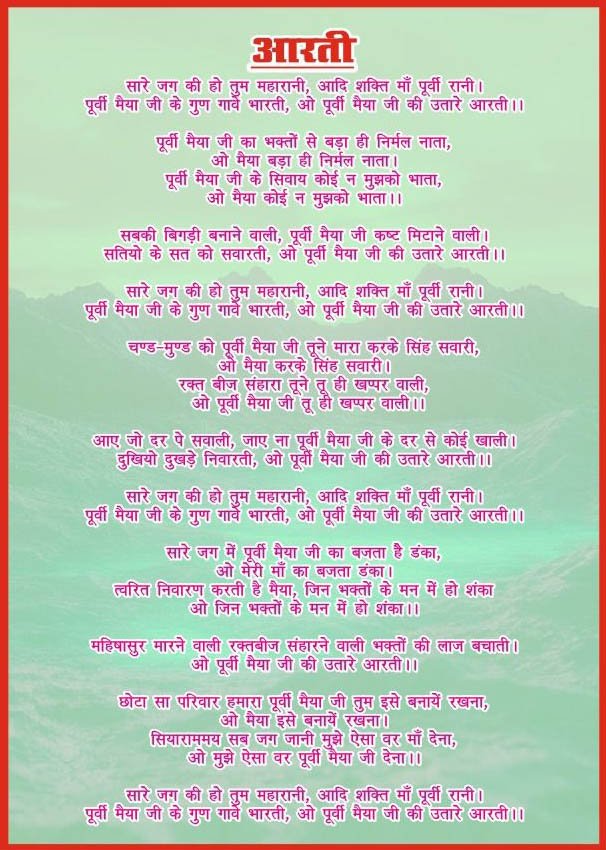 आरती
सारे जग की हो तुम महारानी, आदि शक्ति माँ पूर्वी रानी।
पूर्वी मैया जी के गुण गावे भारती, ओ पूर्वी मैया जी की उतारे आरती।।
पूर्वी मैया जी का भक्तों से बड़ा ही निर्मल नाता,
ओ मैया बड़ा ही निर्मल नाता।
पूर्वी मैया जी के सिवाय कोई न मुझको भाता,
ओ मैया कोई न मुझको भाता।।
सबकी बिगड़ी बनाने वाली, पूर्वी मैया जी कष्ट मिटाने वाली।
सतियो के सत को सवारती, ओ पूर्वी मैया जी की उतारे आरती।।
सारे जग की हो तुम महारानी, आदि शक्ति माँ पूर्वी रानी।
पूर्वी मैया जी के गुण गावे भारती, ओ पूर्वी मैया जी की उतारे आरती।।
चण्ड-मुण्ड को पूर्वी मैया जी तूने मारा करके सिंह सवारी,
ओ मैया करके सिंह सवारी।
रक्त बीज संहारा तूने तू ही खप्पर वाली,
ओ पूर्वी मैया जी तू ही खप्पर वाली।।
आए जो दर पे सवाली, जाए ना पूर्वी मैया जी के दर से कोई खाली।
दुखियो दुखड़े निवारती, ओ पूर्वी मैया जी की उतारे आरती।।
सारे जग की हो तुम महारानी, आदि शक्ति माँ पूर्वी रानी।
पूर्वी मैया जी के गुण गावे भारती, ओ पूर्वी मैया जी की उतारे आरती।।
सारे जग में पूर्वी मैया जी का बजता है डंका,
ओ मेरी माँ का बजता डंका।
त्वरित निवारण करती है मैया, जिन भक्तों के मन में हो शंका
ओ जिन भक्तों के मन में हो शंका।।
महिषासुर मारने वाली रक्तबीज संहारने वाली भक्तों की लाज बचाती।
ओ पूर्वी मैया जी की उतारे आरती।।
छोटा सा परिवार हमारा पूर्वी मैया जी तुम इसे बनायें रखना,
ओ मैया इसे बनायें रखना।
सियाराममय सब जग जानी मुझे ऐसा वर माँ देना,
ओ मुझे ऐसा वर पूर्वी मैया जी देना।।
सारे जग की हो तुम महारानी, आदि शक्ति माँ पूर्वी रानी।
पूर्वी मैया जी के गुण गावे भारती, ओ पूर्वी मैया जी की उतारे आरती।।